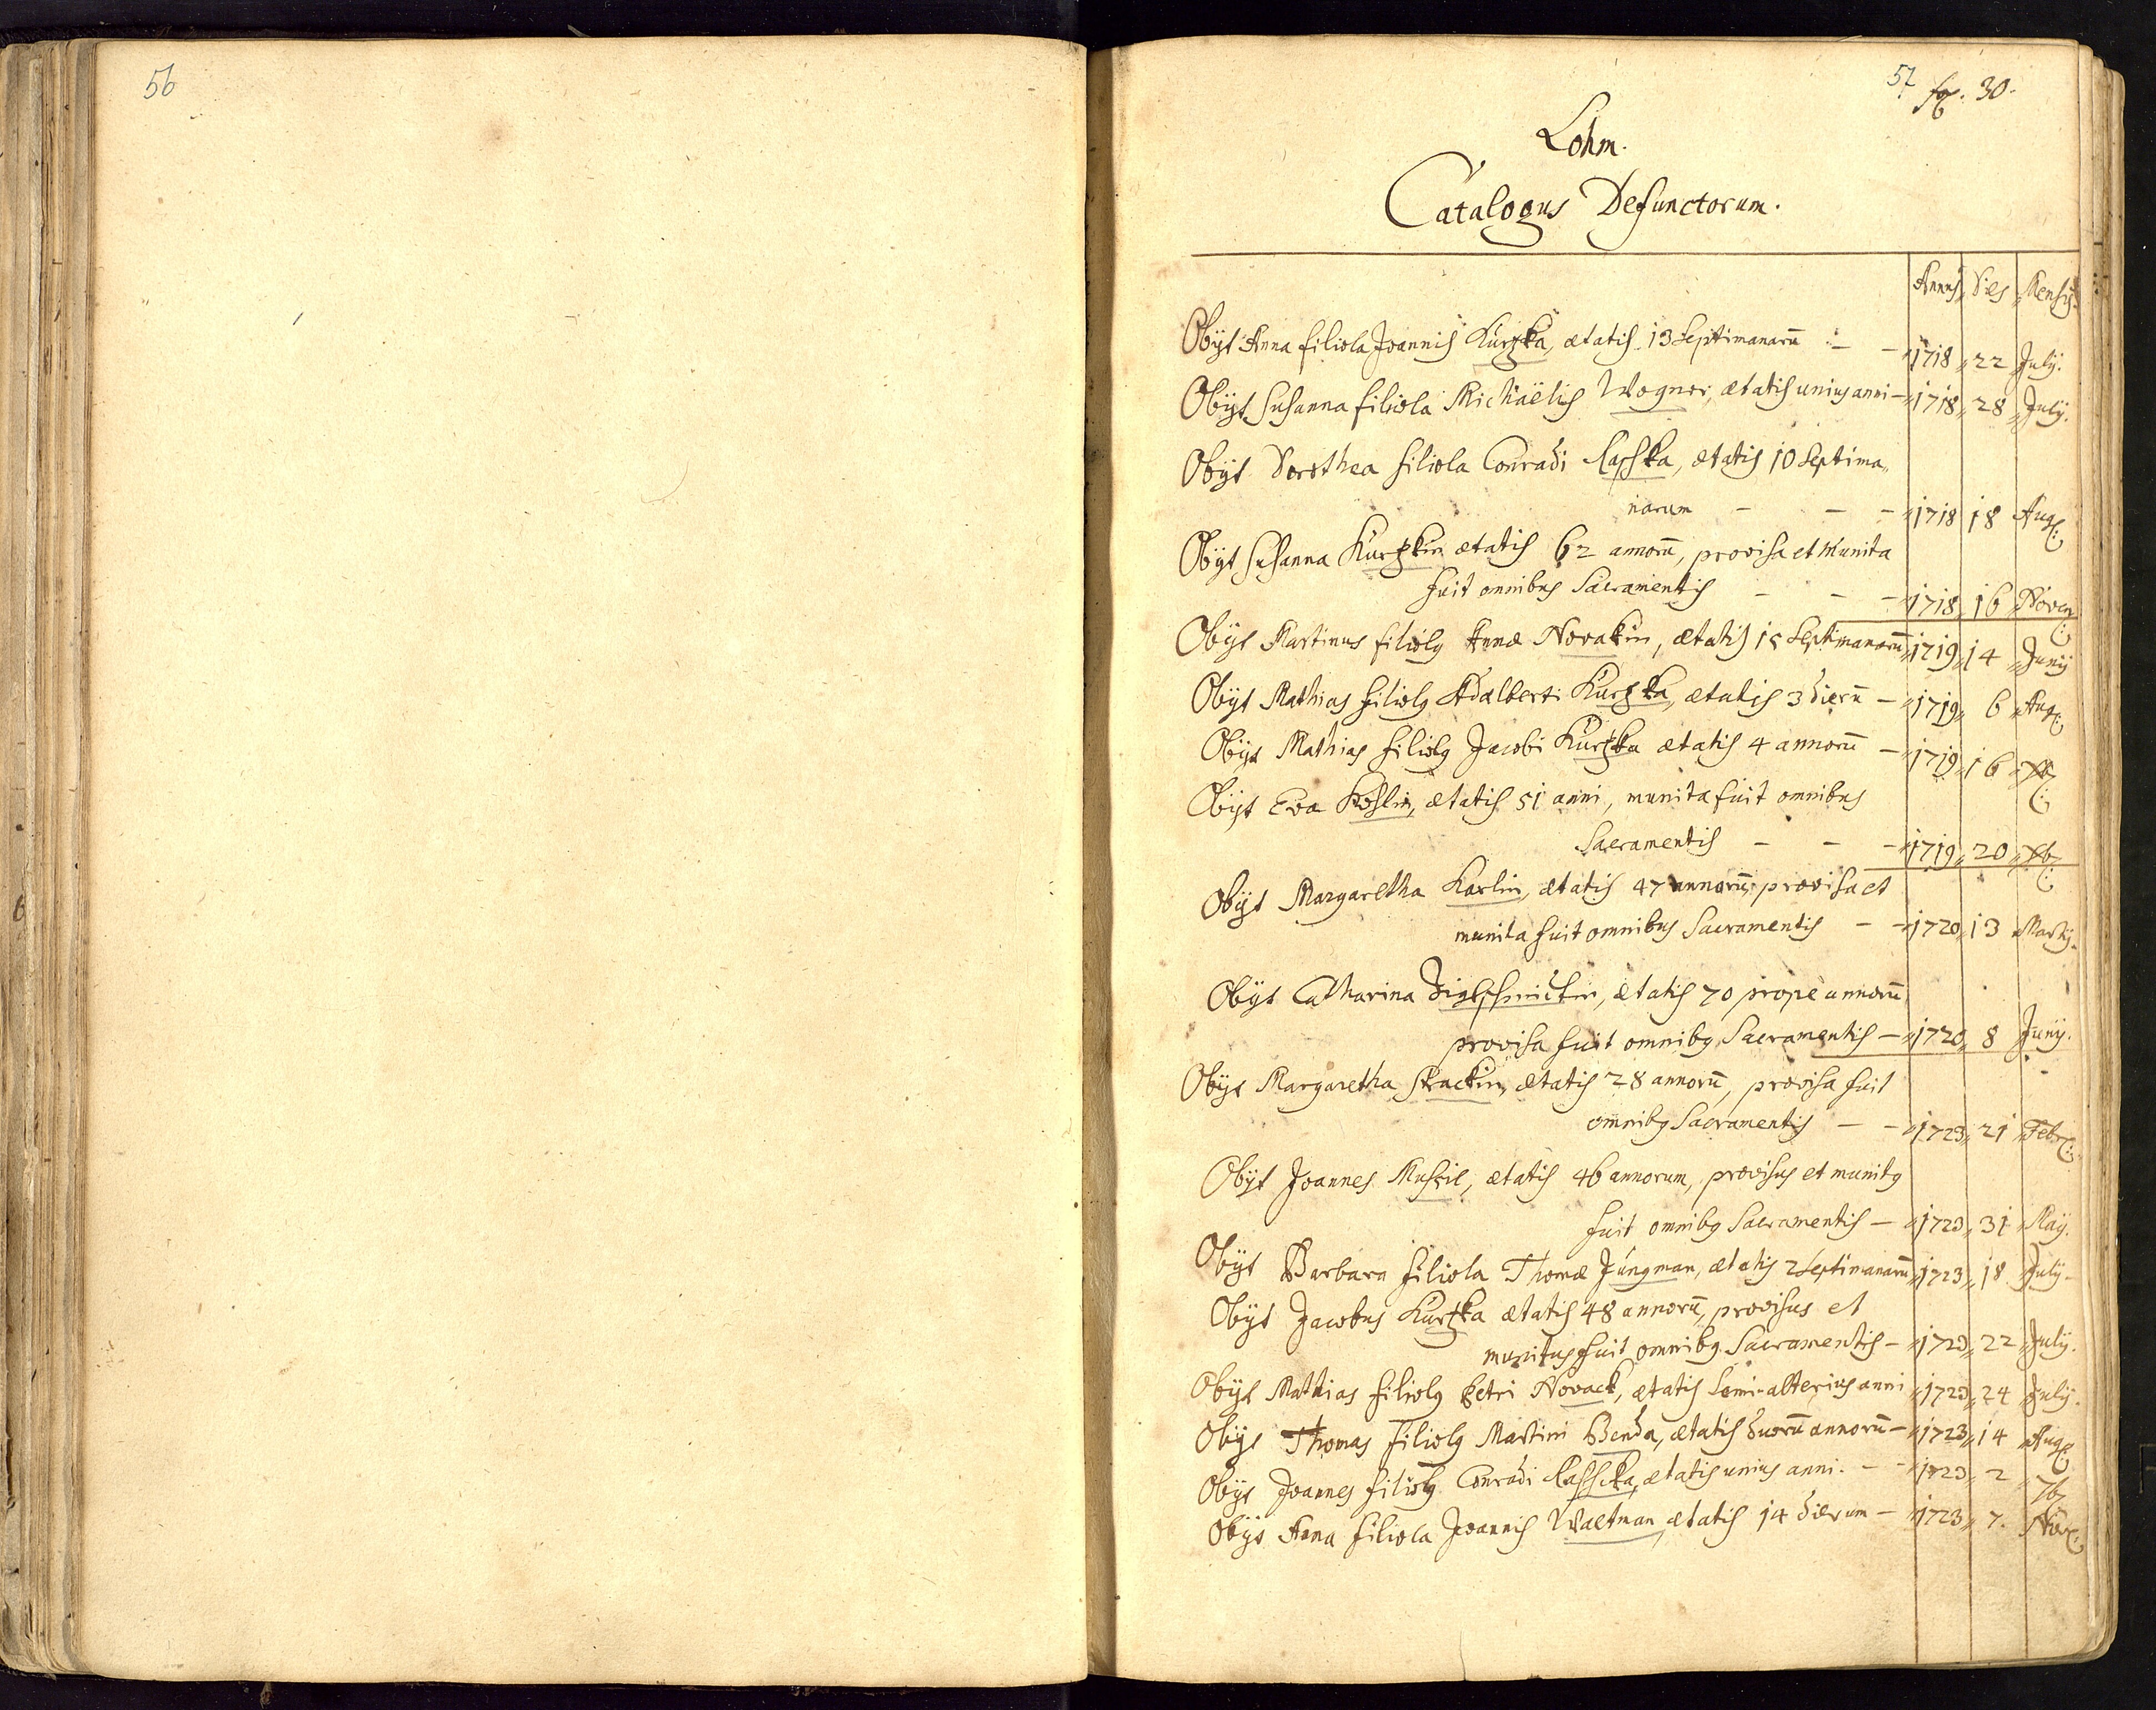 56
57 fol. 30.
Lohm.
Catalogus Defunctorum.
Annus Dies Mensis
Obÿt Anna filiola Joannis Kurzka, ætatis 13 Septimanarū — — 1718 „ 22 July.
Obÿt Susanna filiola Michaëlis Wogner, ætatis unius anni — „1718 „ 28 „ July.
Obÿt Dorothea filiola Conradi Raschka, ætatis 10 Septima„
narum — — — „1718 18 Aug:
Obÿt Susanna Kurzkin ætatis 62 annorū, provisa et munita
fuit omnibus Sacramentis — — — „1718 „ 16 „ Novem:
Obÿt Martinus filiolq Annæ Novakin, ætatis 15 Septimanarū „1719 „ 14 „ Junÿ
Obÿt Mathias filiolq Adalberti Kurzka, ætatis 3 dierū — „1719 „ 6 „ Aug:
Obÿt Mathias filiolq Jacobi Kurzka ætatis 4 annorū — „1719 „ 16 „ Xb:
Obÿt Eva ætatis 51 anni, munita fuit omnibus
Sacramentis — — — „1719 „ 20 „ Xb:
Obÿt Margaretha Karlin, ætatis 47 annorū, provisa et
munita fuit omnibus Sacramentis — — „1720 „ 13 „ Martÿ.
Obÿt Catharina ætatis 70 prope annorū,
provisa fuit omnibq Sacramentis — „1720 „ 8 Junÿ.
Obÿt Margaretha Strackin, ætatis 28 annorū, provisa fuit
omnibq Sacramentis — — „1723 „ 21 „ Feb:
Obÿt Joannes Mussil, ætatis 46 annorum, provisus et munitq
fuit omnibq Sacramentis — „1723 „ 31 „ Maÿ.
Obÿt Barbara filiola Thomæ Jungman, ætatis 2 Septimanarū „1723 „ 18 „ July.
Obÿt Jacobus Kurzka ætatis 48 annorū, provisus et
munitus fuit omnibq Sacramentis — „1723 „ 22 „ July.
Obÿt Mathias filiolq Petri Novack, ætatis Semi-alterius anni „1723 „ 24 „ July.
Obÿt Thomas filiolq Martini Benda, ætatis duorū annorū — „1723 „ 14 „ Aug:
Obÿt Joannes filiolq Conradi Raschka, ætatis unius anni. — — „1723 „ 2 „ 7b
Obÿt Anna filiola Joannis Waltman, ætatis 14 dierum — „1723 „ 7. Nov: